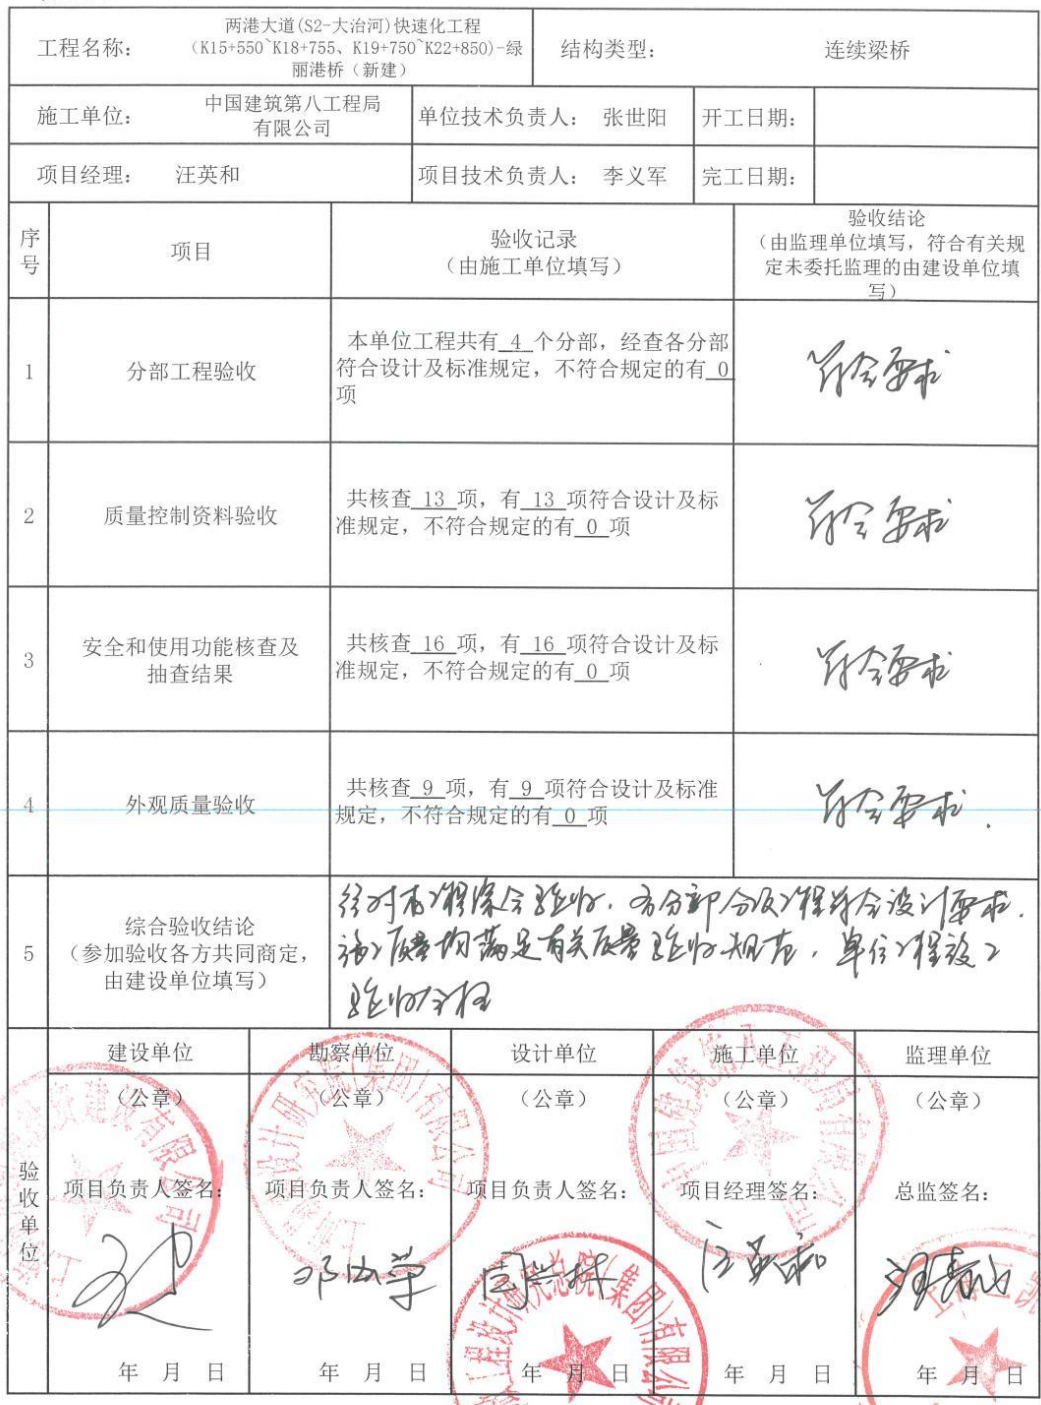 工程名称：
两港大道(S2-大治河)快速化工程
(K15+550~K18+755、K19+750~K22+850)-绿
丽港桥（新建）
结构类型：
连续梁桥
施工单位：
中国建筑第八工程局
有限公司
单位技术负责人：
张世阳
开工日期：
项目经理：
汪英和
项目技术负责人：
李义军
完工日期：
序
号
项目
验收记录
（由施工单位填写）
验收结论
（由监理单位填写，符合有关规
定未委托监理的由建设单位填
写）
1
分部工程验收
本单位工程共有 4 个分部，经查各分部
符合设计及标准规定，不符合规定的有 0
项
符合要求
2
质量控制资料验收
共核查 13 项，有 13 项符合设计及标
准规定，不符合规定的有 0 项
符合要求
3
安全和使用功能核查及
抽查结果
共核查 16 项，有 16 项符合设计及标
准规定，不符合规定的有 0 项
符合要求
4
外观质量验收
共核查 9 项，有 9 项符合设计及标准
规定，不符合规定的有 0 项
符合要求.
5
综合验收结论
（参加验收各方共同商定，
由建设单位填写）
经对本工程综合验收，各分部分项工程符合设计要求.
施工质量均满足有关质量验收规范，单位工程竣工
验收合格
验
收
单
位
建设单位
（公章）
项目负责人签名：
年 月 日
勘察单位
（公章）
项目负责人签名：
年 月 日
设计单位
（公章）
项目负责人签名：
年 月 日
施工单位
（公章）
项目经理签名：
汪英和
年 月 日
监理单位
（公章）
总监签名：
年 月 日